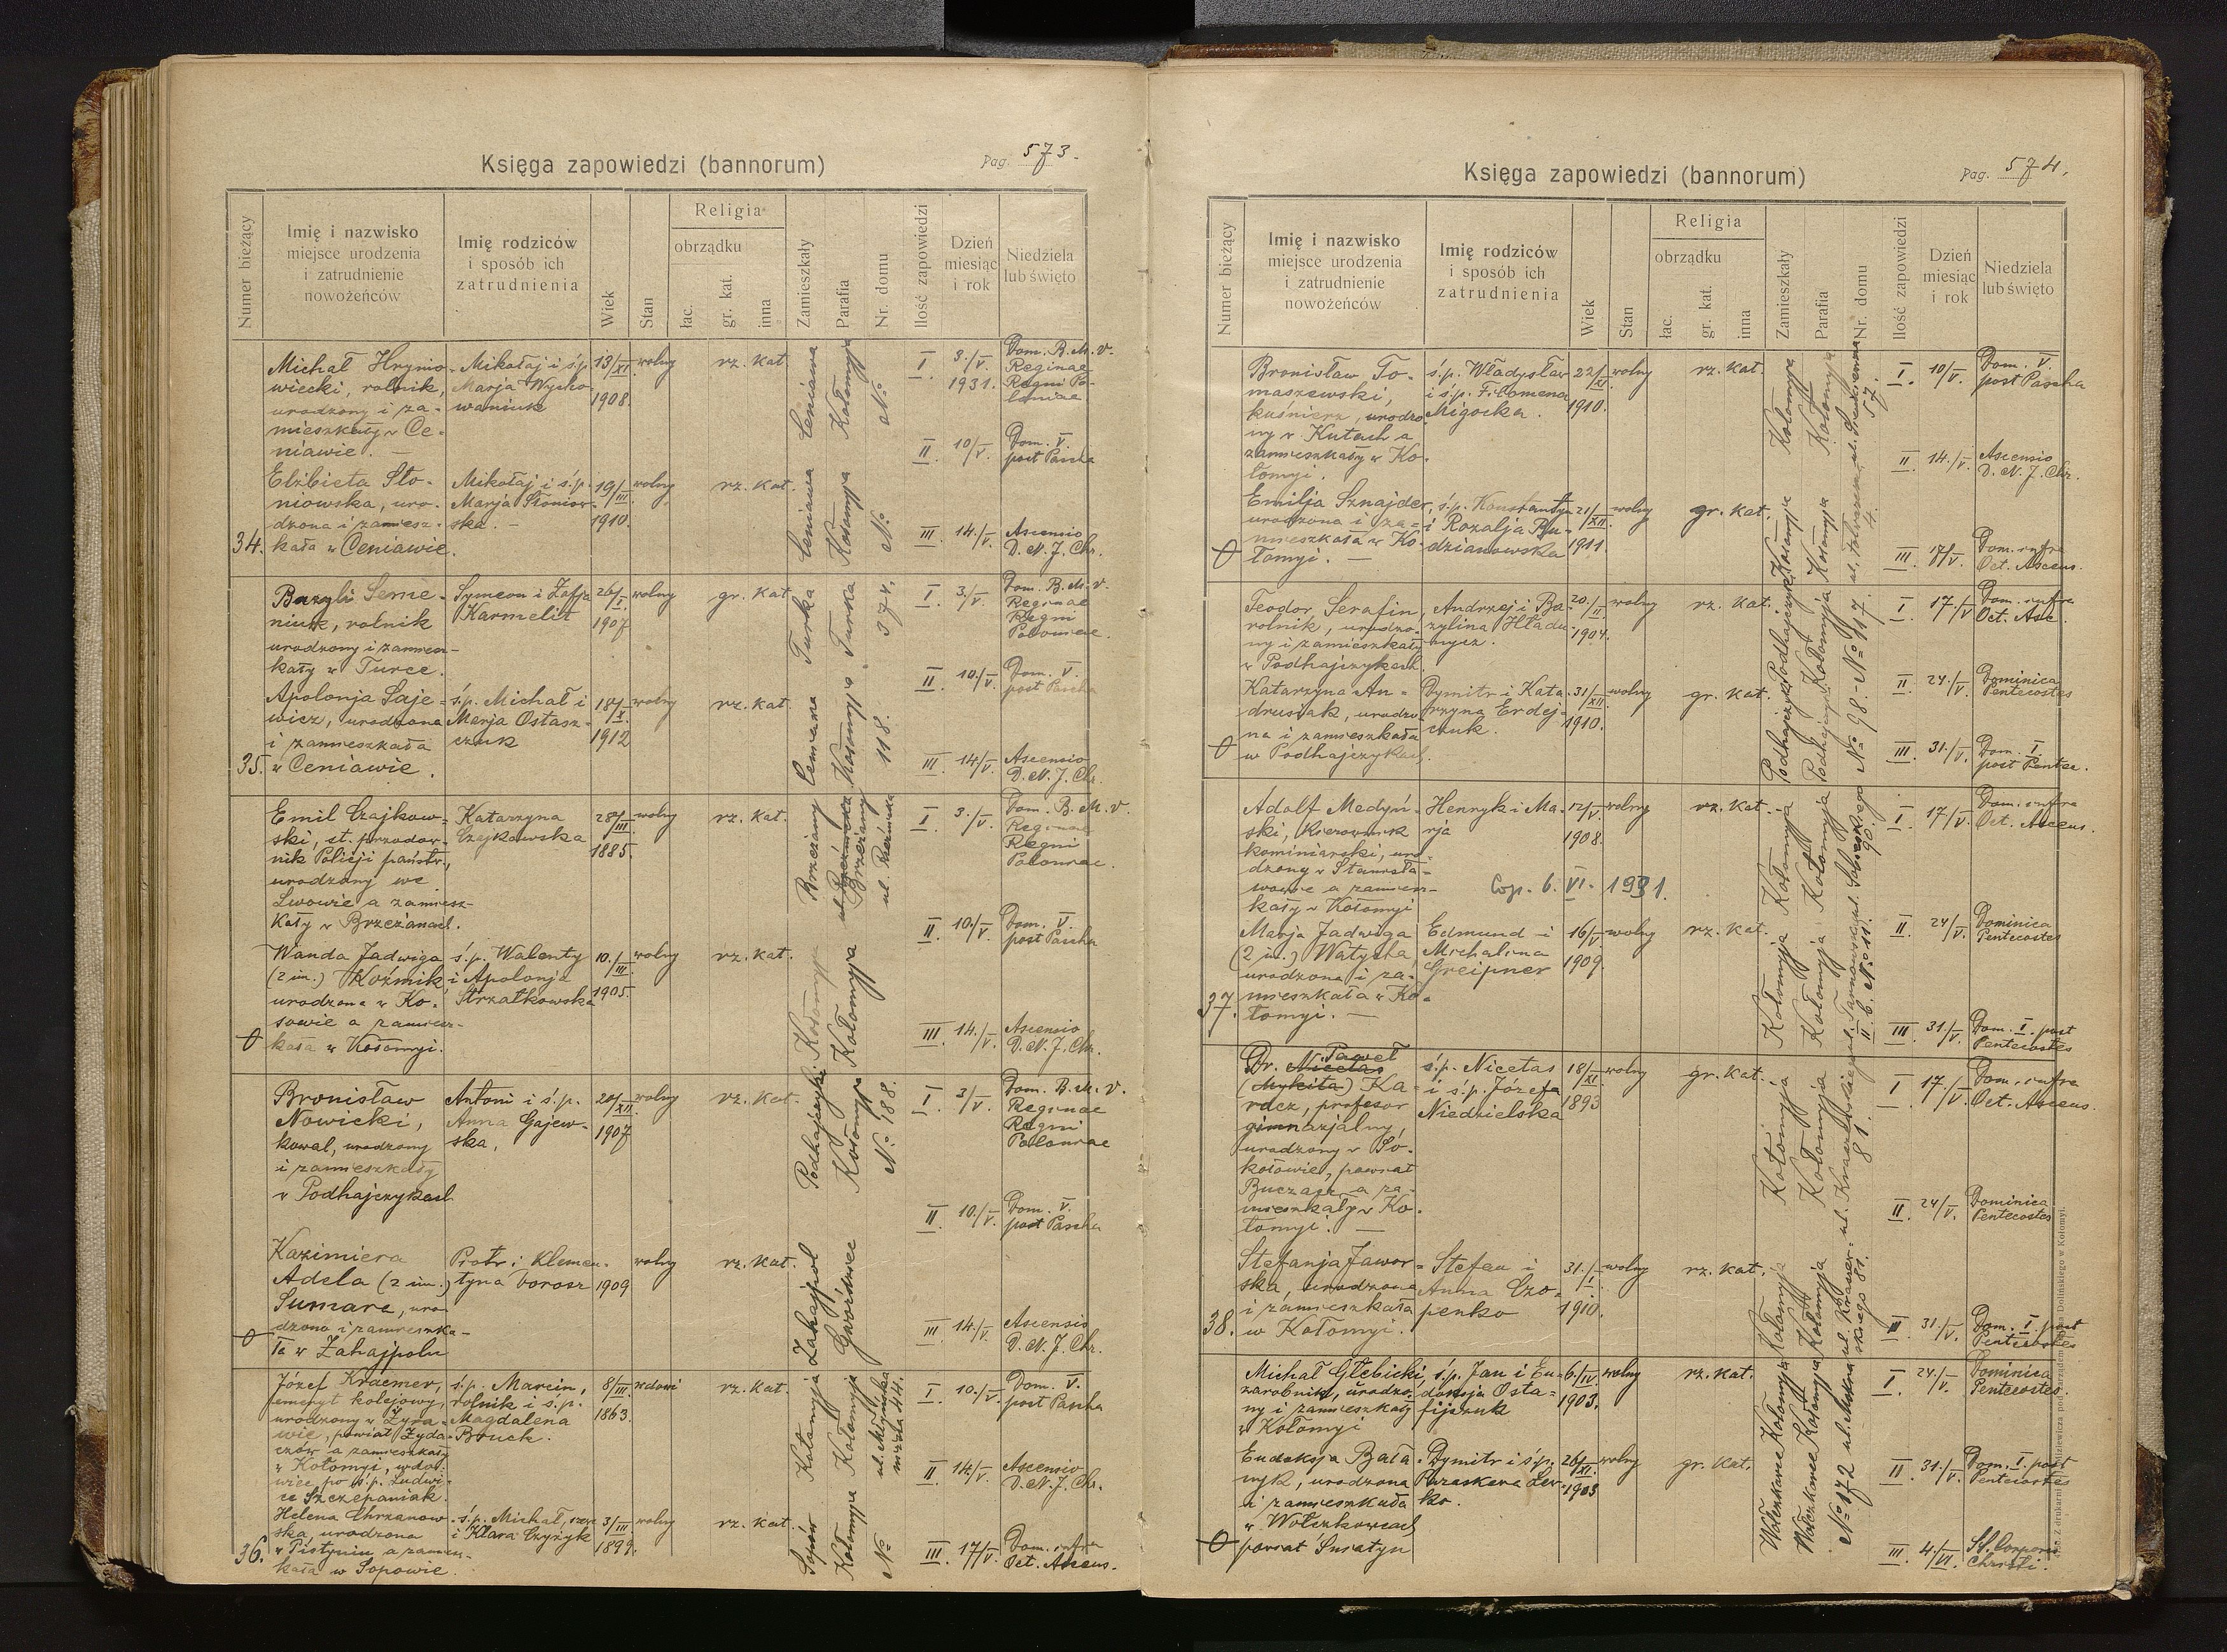 Księga zapowiedzi (bannorum)
Pag. 573.
Numer bieżący
Imię i nazwisko
miejsce urodzenia
i zatrudnienie
nowożeńców
Imię rodziców
i sposób ich
zatrudnienia
Wiek
Stan
Religia
obrządku
łac.
gr. kat.
inna
Zamieszkały
Parafia
Nr. domu
Ilość zapowiedzi
Dzień
miesiąc
i rok
Niedziela
lub święto
Michał Hrynio-
wiecki, rolnik,
urodzony i za-
mieszkały w Ce-
niawie. —
Mikołaj i ś.p.
Marja Wycho-
waniuk
13/XI
1908.
wolny
rz. kat.
Ceniawa
Kołomyja
No
I. 3./V. 1931. Dom. B. M. V.
Reginae
Regni Po-
loniae
II. 10/V. Dom. V.
post Pascha
III. 14./V. Ascensio
D. N. J. Chr.
Elżbieta Sło-
niowska, uro-
dzona i zamiesz-
34. kała w Ceniawie.
Mikołaj i ś.p.
Marja Słoniow-
ska. —
19/III
1910.
wolny
rz. kat.
Ceniawa
Kołomyja
No
Bazyli Seme-
niuk, rolnik
urodzony i zamiesz-
kały w Turce.
Symeon i Zofja
Karmelit
26/I
1907
wolny
gr. kat.
Turka
Turka
374.
I. 3/V. Dom. B. M. V.
Reginae
Regni
Poloniae.
II. 10./V. Dom. V.
post Pascha
III. 14/V. Ascensio
D. N. J. Chr.
Apolonja Saje-
wicz, urodzona
i zamieszkała
35. w Ceniawie.
ś.p. Michał i
Marja Ostasz-
czuk
18/X
1912
wolny
rz. kat.
Ceniawa
Kołomyja
118.
Emil Czajkow-
ski, st. przodow-
nik Policji państw.,
urodzony we
Lwowie a zamiesz-
kały w Brzeżanach.
Katarzyna
Czajkowska
28/III
1885.
wolny
rz. kat.
Brzeżany
Brzeżany
I. 3./V. Dom. B. M. V.
Reginae
Regni
Poloniae.
II. 10./V. Dom. V.
post Pascha
III. 14./V. Ascensio
D. N. J. Chr.
Wanda Jadwiga
(2 im.) Koźmik
urodzona w Ko-
sowie a zamiesz-
kała w Kołomyi.
ś.p. Walenty
i Apolonja
Strzałkowska
10./III
1905.
wolny
rz. kat.
Kołomyja
Kołomyja
Bronisław
Nowicki,
kowal, urodzony
i zamieszkały
w Podhajczykach
Antoni i ś.p.
Anna Gajew-
ska.
20/XII
1907
wolny
rz. kat.
Podhajczyki
Kołomyja
No 188.
I. 3/V. Dom. B. M. V.
Reginae
Regni
Poloniae
II. 10./V. Dom. V.
post Pascha
III. 14./V. Ascensio
D. N. J. Chr.
Kazimiera
Adela (2 im.)
Sumara, uro-
dzona i zamieszka-
ła w Zahajpolu
Piotr i Klemen-
tyna Dorosz
1909
wolny
rz. kat.
Zahajpol
Gwoździec
Józef Kraemer,
emeryt kolejowy,
urodzony w Żyra-
wie, powiat Żyda-
czów a zamieszkały
w Kołomyi, wdo-
wiec po ś.p. Ludwi-
ce Szczepaniak.
ś.p. Marcin,
rolnik i ś.p.
Magdalena
Bruck.
8/III
1863.
rz. kat.
Kołomyja
Kołomyja
ul. Młyńska
44.
I. 10./V. Dom. V.
post Pascha
II. 14./V. Ascensio
D. N. J. Chr.
III. 17/V. Dom. infra
Oct. Ascens.
Helena Chrzanow-
ska, urodzona
w Pistyniu a zamiesz-
36. kała w Sopowie.
ś.p. Michał,
i Klara Czyżyk
3/III
1899.
wolny
rz. kat.
Sopów
Kołomyja
No
Księga zapowiedzi (bannorum)
Pag. 574.
Numer bieżący
Imię i nazwisko
miejsce urodzenia
i zatrudnienie
nowożeńców
Imię rodziców
i sposób ich
zatrudnienia
Wiek
Stan
Religia
obrządku
łac.
gr. kat.
inna
Zamieszkały
Parafia
Nr. domu
Ilość zapowiedzi
Dzień
miesiąc
i rok
Niedziela
lub święto
Bronisław To-
maszewski,
kuśnierz, urodzo-
ny w Kutach a
zamieszkały w Ko-
łomyi.
ś.p. Władysław
i ś.p. Filomena
Migocka.
22/XI
1910.
wolny
rz. kat.
Kołomyja
Kołomyja
57.
I. 10/V. Dom. V.
post Pascha
II. 14./V. Ascensio
D. N. J. Chr.
III. 17/V. Dom. infra
Oct. Ascens.
Emilja Sznajder,
urodzona i za-
mieszkała w Ko-
łomyi. —
ś.p. Konstanty
i Rozalja Ru-
dzianowska
21/XII
1911.
wolny
gr. kat.
Kołomyja
Kołomyja
4.
Teodor Serafin,
rolnik, urodzo-
ny i zamieszkały
w Podhajczykach.
Andrzej i Ba-
zylina Hładu-
nycz.
20./II
1904.
wolny
rz. kat.
Podhajczyki
Kołomyja
No 117.
I. 17./V Dom. infra
Oct. Asc.
II. 24./V. Dominica
Pentecostes
III. 31./V. Dom. I.
post Pentec.
Katarzyna An-
drusiak, urodzo-
na i zamieszkała
w Podhajczykach.
Dymitr i Kata-
rzyna Erdej-
czuk.
31/XII
1910.
wolny
gr. kat.
Podhajczyki
Podhajczyki
No 98.
Adolf Medyń-
ski, kierownik
kominiarski, uro-
dzony w Stanisła-
wowie a zamiesz-
kały w Kołomyi
Henryk i Ma-
rja
12/V.
1908.
wolny
rz. kat.
Kołomyja
Kołomyja
ul. Sobieskiego
90.
I. 17/V. Dom. infra
Oct. Ascens.
Cop. 6. VI. 1931.
II. 24/V. Dominica
Pentecostes
III. 31/V. Dom. I. post
Pentecostes
Marja Jadwiga
(2 im.) Watycha
urodzona i za-
mieszkała w Ko-
37. łomyi. —
Edmund i
Michalina
Greipner
16/V
1909.
wolny
rz. kat.
Kołomyja
Kołomyja
Paweł
Dr. Nicetas
(Mykita) Ka-
racz, profesor
gimnazjalny,
urodzony w So-
kołowie, powiat
Buczacz a za-
mieszkały w Ko-
łomyi. —
ś.p. Nicetas
i ś.p. Józefa
Niedzielska
18/XI
1893
wolny
gr. kat.
Kołomyja
Kołomyja
81.
I. 17./V. Dom. infra
Oct. Ascens.
II. 24/V. Dominica
Pentecostes
III. 31./V. Dom. I. post
Pentecostes
Stefanja Jawor-
ska, urodzona
i zamieszkała
38. w Kołomyi.
Stefan i
Anna Czo-
penko
31./I.
1910.
wolny
rz. kat.
Kołomyja
Kołomyja
ul. Kraszew-
skiego 81.
Michał Głębicki,
zarobnik, urodzo-
ny i zamieszkały
w Kołomyi
ś.p. Jan i Eu-
doksja Osta-
fijczuk
6./IV
1903.
wolny
rz. kat.
Kołomyja
Kołomyja
ul. Mokra
I. 24./V. Dominica
Pentecostes.
II. 31./V. Dom. I. post
Pentecostes
III. 4./VI. SS. Corporis
Christi.
Eudoksja Bała-
nyk, urodzona
i zamieszkała
w Wołczkowcach
powiat Śniatyn
Dymitr i ś.p.
Paraskewa Lew-
ko.
26/XI.
1903
wolny
gr. kat.
Wołczkowce
Wołczkowce
No 172